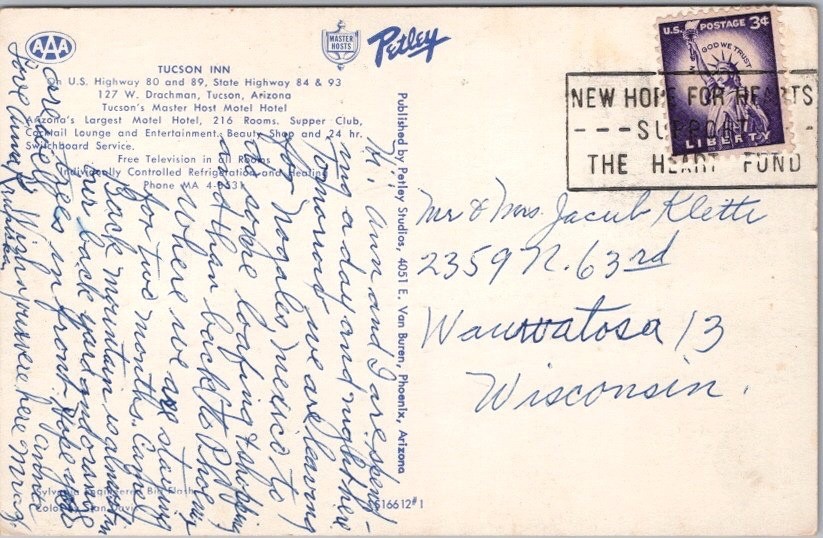 AAA
MASTER HOSTS
Petley
TUCSON INN
On U.S. Highway 80 and 89, State Highway 84 & 93
127 W. Drachman, Tucson, Arizona
Tucson's Master Host Motel Hotel
Arizona's Largest Motel Hotel, 216 Rooms. Supper Club,
Cocktail Lounge and Entertainment. Beauty Shop and 24 hr.
Switchboard Service.
Free Television in all Rooms
Individually Controlled Refrigeration and Heating
Phone MA 4-
Hi! Ann and I are spend-
ing a day and night here
Tomorrow we are leaving
for Nogales, Mexico to
do some loafing & shopping
and than back to Phoenix
where we are staying
for two months.
back mountain is almost in
our back yard and orange
trees in front. Hope all
are well. Wish you were here
Love Anna
Published by Petley Studios, 4051 E. Van Buren, Phoenix, Arizona
S16612#1
U.S. POSTAGE 3¢
IN GOD WE TRUST
LIBERTY
NEW HOPE FOR HEARTS
---SUPPORT -
THE HEART FUND
Mr & Mrs. Jacob Klette
2359 N. 63rd
Wauwatosa 13
Wisconsin.